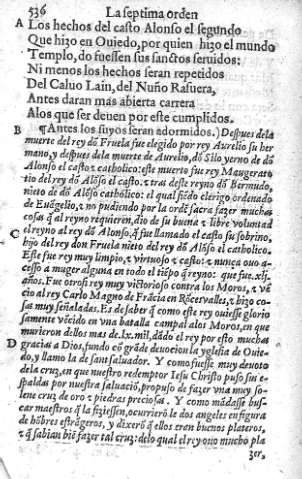 536 La septima orden
A Los hechos del casto Alonso el segundo
Que hizo en Ouiedo, por quien hizo el mundo
Templo, do fuessen sus sanctos seruidos:
Ni menos los hechos seran repetidos
Del Caluo Lain, del Nuño Rasuera,
Antes daran mas abierta carrera
A los que se deuen por este cumplidos.
B ¶Antes los suyos seran adormidos.) Despues dela
muerte del rey dõ Fruela fue elegido por rey Aurelio su her
mano, y despues dela muerte de Aurelio, dõ Silo yerno de dõ
Alonso el casto ⁊ catholico: este muerto fue rey Maugerato
tio del rey dõ Alõso el casto. ⁊ tras deste reyno dõ Bermudo,
nieto de dõ Alõso catholico: el qual siẽdo clerigo ordenado
de Euãgelio, ⁊ no pudiendo por la ordẽ sacra fazer muchas
cosas q̃ al reyno requieren, dio de su buena ⁊ libre voluntad
C el reyno al rey dõ Alonso, q̃ fue llamado el casto su sobrino,
hijo del rey don Fruela nieto del rey dõ Alõso el catholico.
Este fue rey muy limpio, ⁊ virtuoso ⁊ casto: ⁊ nunca ouo a-
cesso a muger alguna en todo el tiẽpo q̃ reyno: que fue .xlj.
años. Fue otrosi rey muy victorioso contra los Moros, ⁊ vẽ
cio al rey Carlo Magno de Frãcia en Rõcesvalles, ⁊ hizo co-
sas muy señaladas. Es de saber q̃ como este rey ouiesse glorio
samente vẽcido en vna batalla campal alos Moros, en que
murieron dellos mas de .lx. mil, dãdo el rey por esto muchas
D gracias a Dios, fundo cõ grãde deuocion la yglesia de Ouie-
do, y llamo la de sant saluador. Y como fuesse muy deuoto
dela cruz, en que nuestro redemptor Iesu Christo puso sus e-
spaldas por nuestra saluaciõ, propuso de fazer vna muy so-
lene cruz de oro ⁊ piedras preciosas. Y como mãdasse bus-
car maestros q̃ la fiziessen, ocurrierõ le dos angeles en figura
de hõbres estrãgeros, y dixerõ q̃ ellos eran buenos plateros,
⁊ q̃ sabian biẽ fazer tal cruz: delo qual el rey ouo mucho pla
zer,